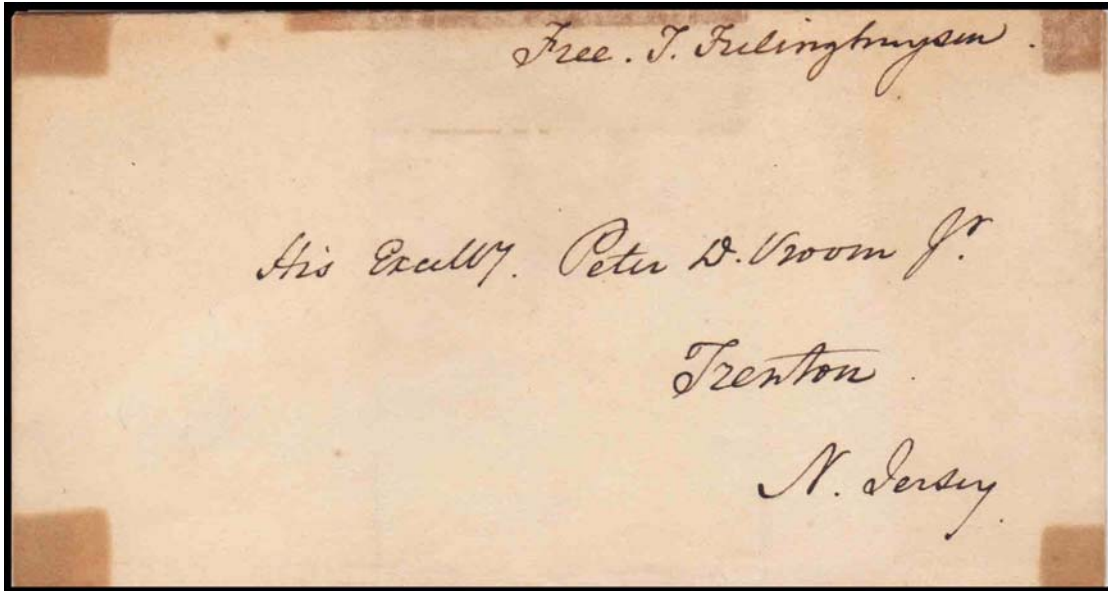 Free. T. Frelinghuysen.
His Excelly. Peter D. Vroom Jr.
Trenton.
N. Jersey